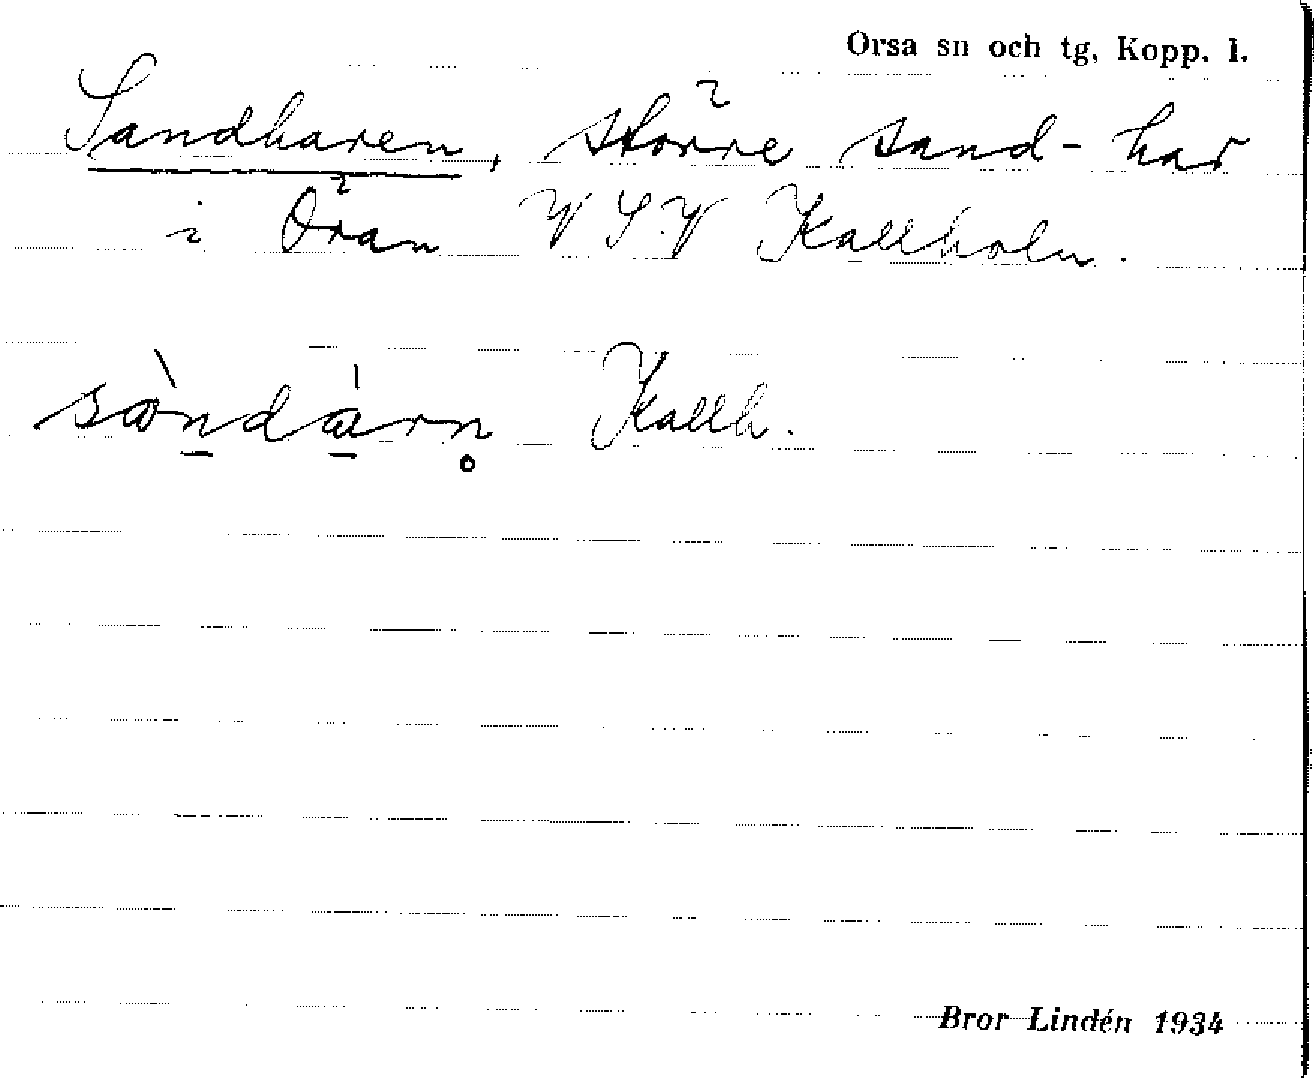 Orsa sn och tg, Kopp. l.
Sandharen, större sand-har
i Öran V S.V Kallholn.
sàndàrn Kallh.
Bror Lindén 1934